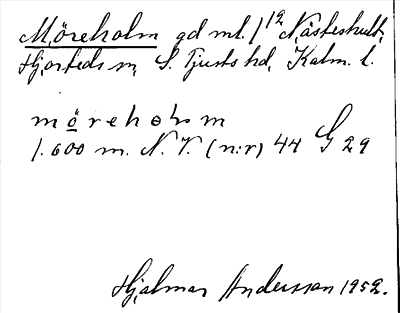 Möreholm gd ml. 1 12 Nästeshult,
Hjorteds sn, S. Tjusts hd, Kalm. l.
möreholm
1.600 m. N.V. (n:r) 44 G 29
Hjalmar Andersson 1952.